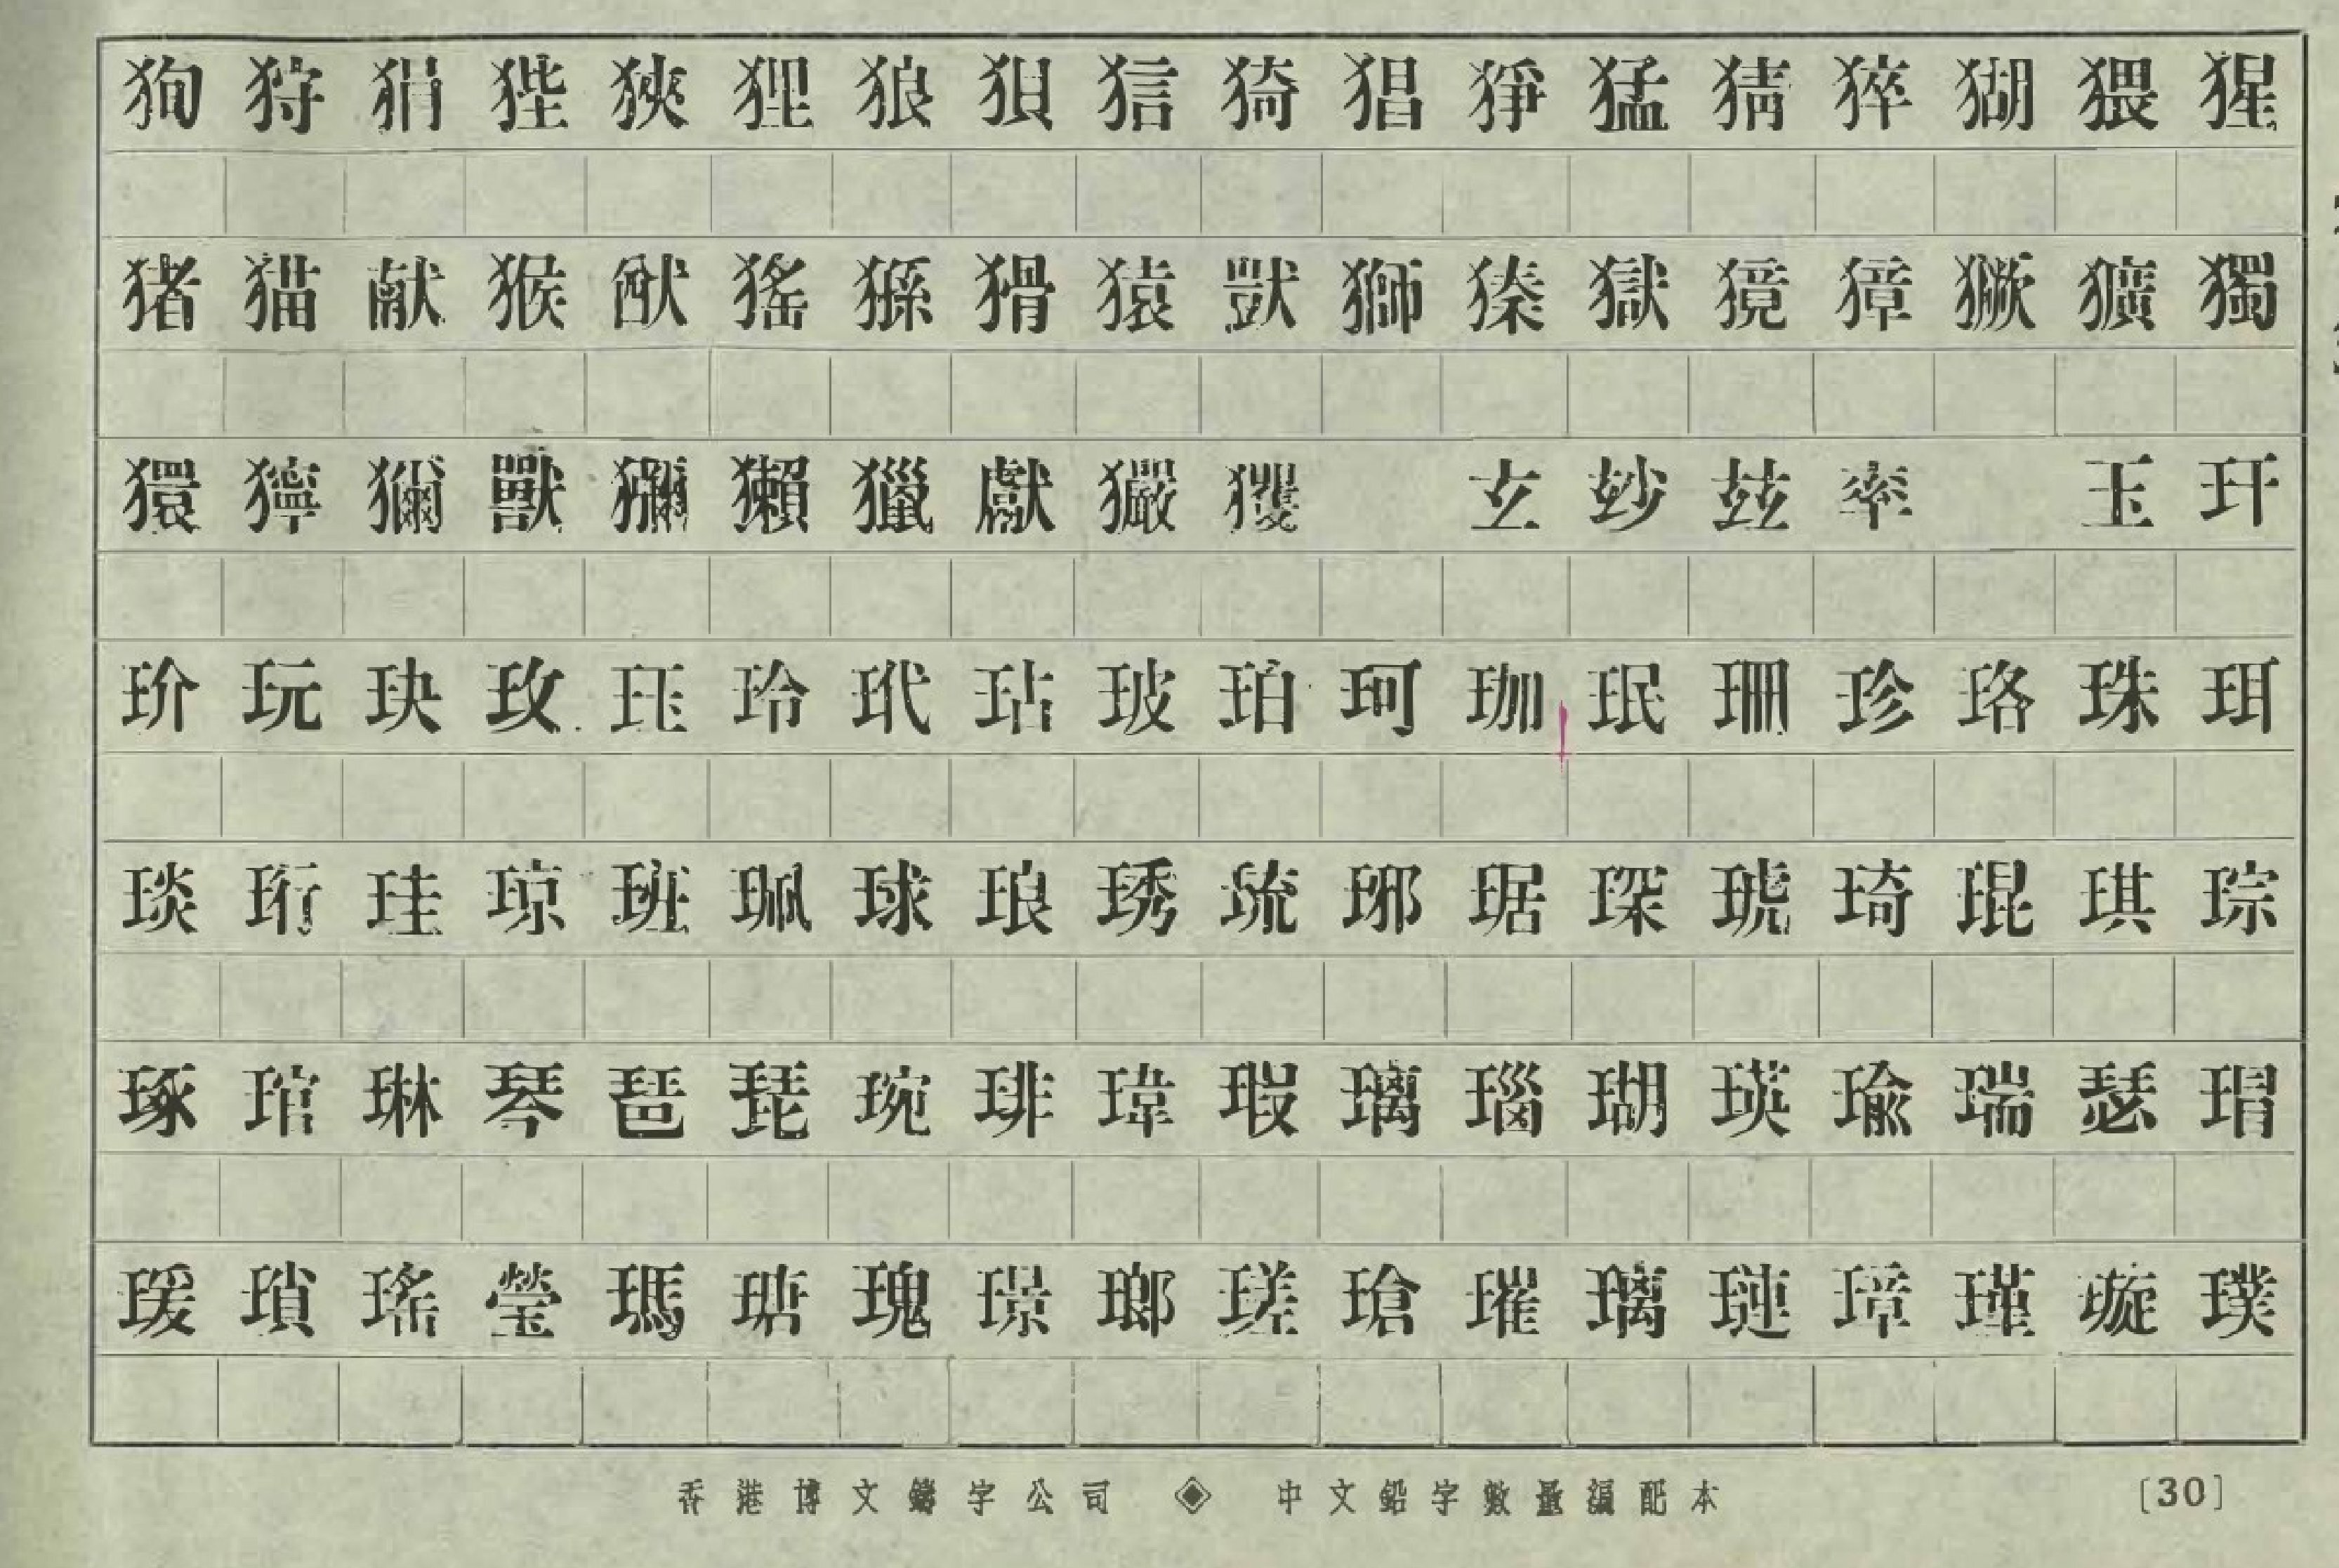 狗 狩 狷 狴 狹 狸 狼 狽 狺 猗 猖 猙 猛 猜 猝 猢 猥 猩
猪 猫 献 猴 猷 猺 猻 猾 猿 獃 獅 獉 獄 獍 獐 獗 獷 獨
獧 獰 獮 獸 獮 獺 獵 獻 玁 玃 玄 玅 玆 率 玉 玕
玠 玩 玦 玫 玨 玲 玳 玷 玻 珀 珂 珈 珉 珊 珍 珞 珠 珥
琰 珩 珪 琼 班 珮 球 琅 琇 琉 琊 琚 琛 琥 琦 琨 琪 琮
琢 琯 琳 琴 琶 琵 琬 琲 瑋 瑕 璃 瑙 瑚 瑛 瑜 瑞 瑟 瑁
瑗 瑣 瑤 瑩 瑪 瑭 瑰 璟 瑯 瑳 瑲 璀 璃 璉 璋 瑾 璇 璞
香港博文鑄字公司 ◈ 中文鉛字數量編配本 [30]